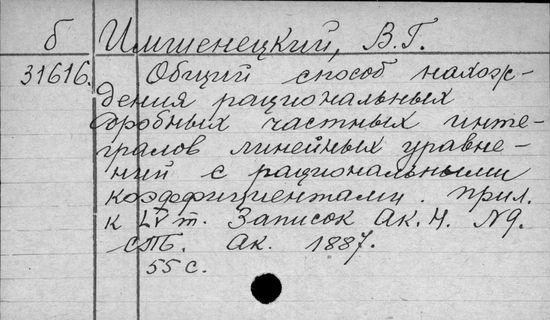 б Имшенецкий, В.Г.
31616. Общий способ нахож-
дения рациональных
дробных частных инте-
гралов линейных уравне-
ний с рациональными
коэффициентами. Прил.
к LV т. Записок Ак. Н. №9.
СПБ. Ак. 1887.
55 с.